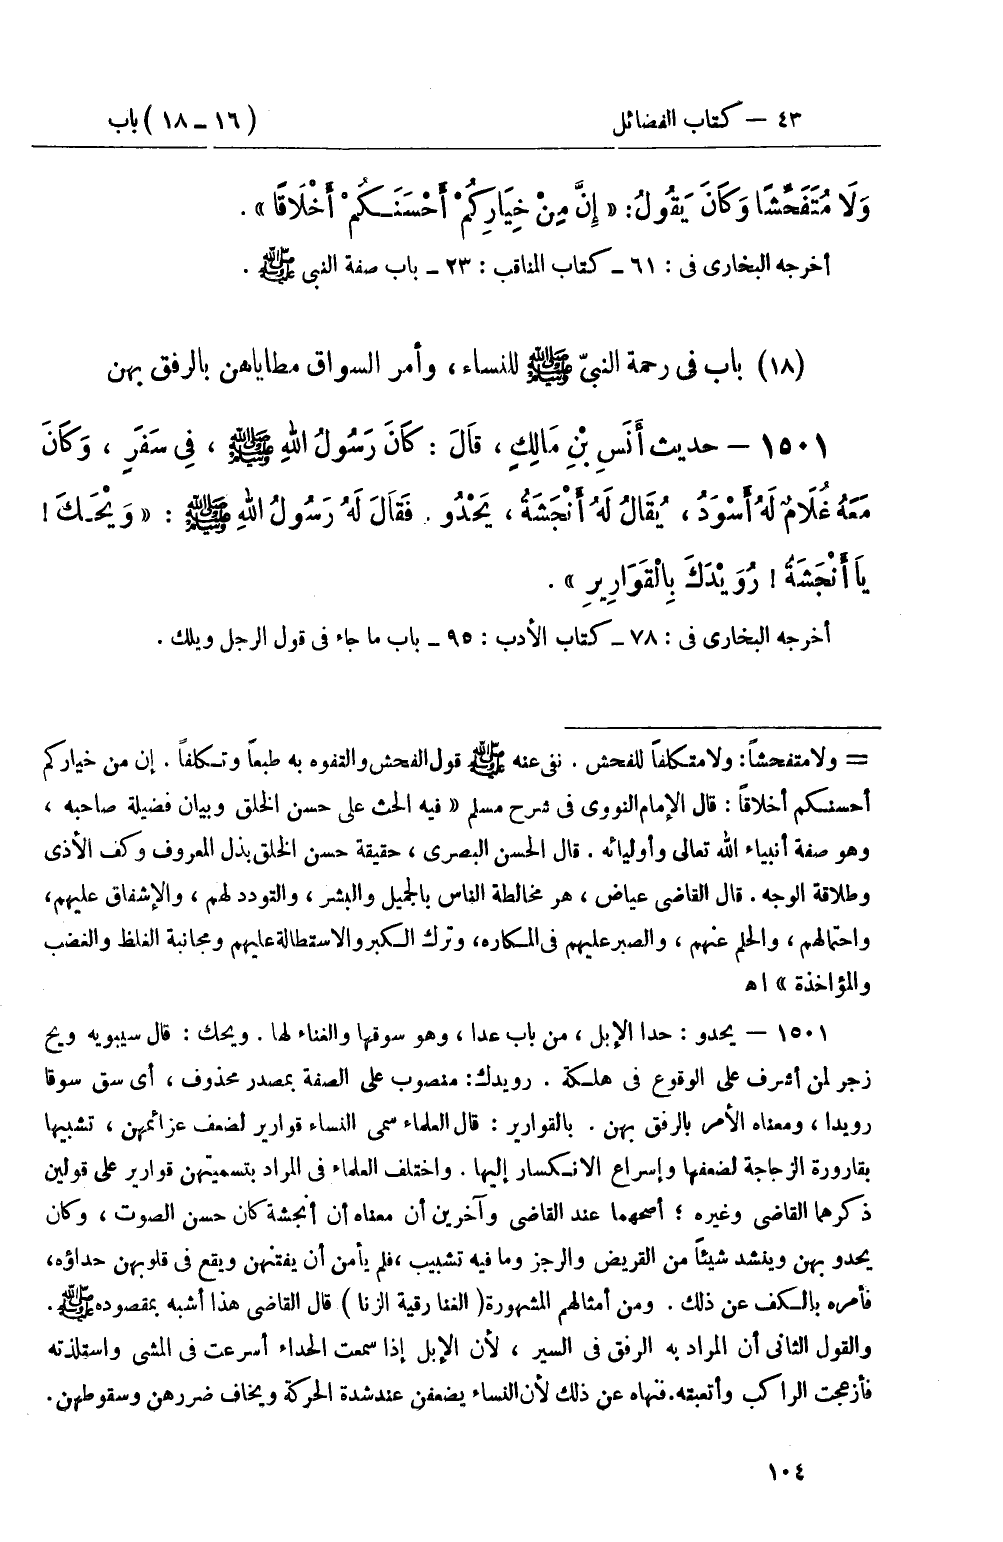 ٤٣ — كتاب الفضائل (١٦ – ١٨) باب
وَلَا مُتَفَحِّشًا وَكَانَ يَقُولُ: « إِنَّ مِنْ خِيَارِكُمْ أَحْسَنَكُمْ أَخْلَاقًا » .
أخرجه البخارى فى : ٦١ – كتاب المناقب : ٢٣ – باب صفة النبى ﷺ .
(١٨) باب فى رحمة النبىّ ﷺ للنساء ، وأمر السواق مطاياهن بالرفق بهن
١٥٠١ — حديث أَنَسِ بْنِ مَالِكٍ ، قَالَ : كَانَ رَسُولُ اللهِ ﷺ ، فِي سَفَرٍ ، وَكَانَ
مَعَهُ غُلَامٌ لَهُ أَسْوَدُ ، يُقَالُ لَهُ أَنْجَشَةُ ، يَحْدُو . فَقَالَ لَهُ رَسُولُ اللهِ ﷺ : « وَيْحَكَ !
يَا أَنْجَشَةُ ! رُوَيْدَكَ بِالْقَوَارِيرِ » .
أخرجه البخارى فى : ٧٨ – كتاب الأدب : ٩٥ – باب ما جاء فى قول الرجل ويلك .
= ولا متفحشاً : ولا متكلفاً للفحش . نفى عنه ﷺ قول الفحش والتفوه به طبعاً وتكلفاً . إن من خياركم
أحسنكم أخلاقاً : قال الإمام النووى فى شرح مسلم « فيه الحث على حسن الخلق وبيان فضيلة صاحبه ،
وهو صفة أنبياء الله تعالى وأوليائه . قال الحسن البصرى ، حقيقة حسن الخلق بذل المعروف وكف الأذى
وطلاقة الوجه . قال القاضى عياض ، هر مخالطة الناس بالجميل والبشر ، والتودد لهم ، والإشفاق عليهم،
واحتمالهم ، والحلم عنهم ، والصبر عليهم فى المكاره، وترك الكبر والاستطالة عليهم ومجانبة الغلظ والغضب
والمؤاخذة » اهـ
١٥٠١ — يحدو : حدا الإبل ، من باب عدا ، وهو سوقها والغناء لها . ويحك : قال سيبويه ويح
زجر لمن أشرف على الوقوع فى هلكة . رويدك : منصوب على الصفة بمصدر محذوف ، أى سق سوقا
رويدا ، ومعناه الأمر بالرفق بهن . بالقوارير : قال العلماء سمى النساء قوارير لضعف عزائمهن ، تشبيها
بقارورة الزجاجة لضعفها وإسراع الانكسار إليها . واختلف العلماء فى المراد بتسميتهن قوارير على قولين
ذكرهما القاضى وغيره ؛ أصحهما عند القاضى وآخرين أن معناه أن أنجشة كان حسن الصوت ، وكان
يحدو بهن وينشد شيئاً من القريض والرجز وما فيه تشبيب ،فلم يأمن أن يفتنهن ويقع فى قلوبهن حداؤه،
فأمره بالكف عن ذلك . ومن أمثالهم المشهورة ( الغنا رقية الزنا ) قال القاضى هذا أشبه بمقصوده ﷺ .
والقول الثانى أن المراد به الرفق فى السير ، لأن الإبل إذا سمعت الحداء أسرعت فى المشى واستلذته
فأزعجت الراكب وأتعبته.فنهاه عن ذلك لأن النساء يضعفن عند شدة الحركة ويخاف ضررهن وسقوطهن.
١٠٤